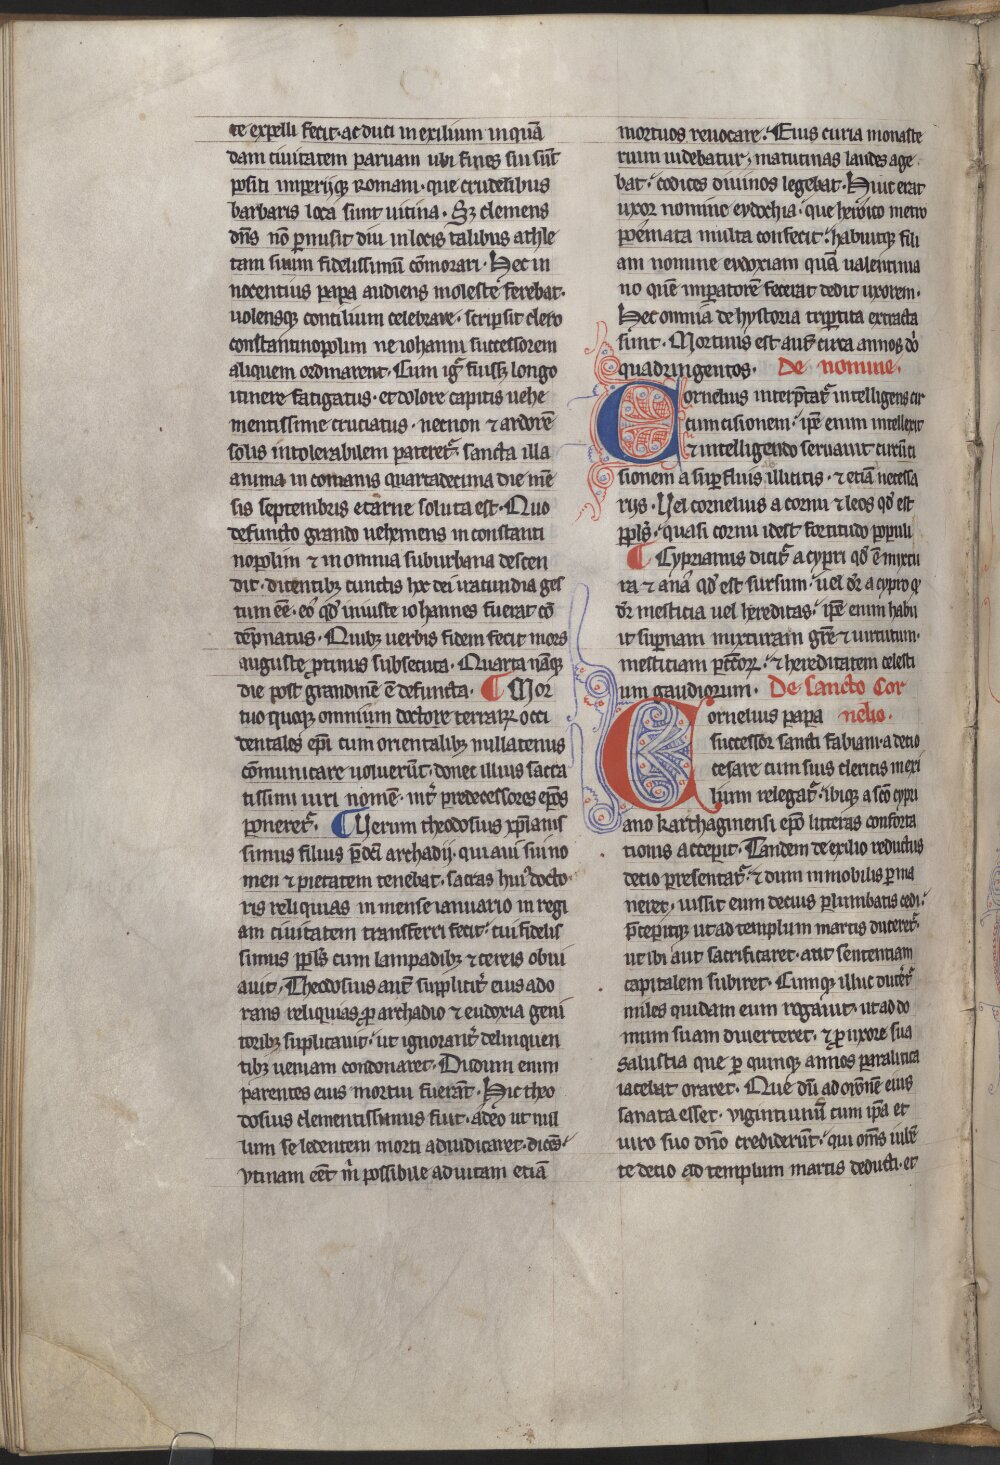 te expelli fecit· ac duci in exilium in quā
dam ciuitatem paruam ubi fines sui sūt
positi imperijq; romani· que crudelibus
barbaris loca sunt uicina· Sꝫ clemens
dn̄s nō ꝑmisit diu in locis talibus athle
tam suum fidelissimū cōmorari· Hec in
nocentius papa audiens moleste ferebat·
uolensq; concilium celebrare· scripsit clero
constantinopolim ne iohanni successorem
aliquem ordinarent· Cum igr̄ fuissꝫ longo
itinere fatigatus· et dolore capitis uehe
mentissime cruciatus· necnon ⁊ ardorē
solis intolerabilem pateret᷑· sancta illa
anima in comanis quartadecima die mē
sis septembris e carne soluta est· Quo
defuncto grando uehemens in constanti
nopolim ⁊ in omnia suburbana descen
dit· dicentibꝫ cunctis hoc dei iracundia ges
tum eē· eo qd̓ iniuste iohannes fuerat cō
dēpnatus· Quibꝫ uerbis fidem fecit mors
auguste ꝓtinus subsecuta· Quarta nāq;
die post grandinē ē defuncta· ¶ Mor
tuo quoq; omnium doctore terraꝝ occi
dentales ep̄i cum orientalibꝫ nullatenus
cōmunicare uoluerūt· donec illius sacra
tissimi uiri nomē· int̄ predecessores ep̄os
poneret᷑· ¶ Uerum theodosius xp̄ianis
simus filius p̄dc̄i archadij· qui aui sui no
men ⁊ pietatem tenebat· sacras hui᷒ docto
ris reliquias in mense ianuario in regi
am ciuitatem transferri fecit· cui fidelis
simus ppl̄s cum lampadibꝫ ⁊ cereis obui
auit· Theodosius aut̄ supplicit̄ eius ado
rans reliquias ꝓ archadio ⁊ eudoxia geni
toribꝫ suplicauit· ut ignorant̄ delinquen
tibꝫ ueniam condonaret· Dudum enim
parentes eius mortui fuerāt· Hic theo
dosius clementissimus fuit· adeo ut nul
lum se ledentem morti adiudicaret· dicēs
vtinam eēt m̄ possibile ad uitam etiā
mortuos reuocare· Eius curia monaste
rium uidebatur· matutinas laudes age
bat· codices diuinos legebat· Huic erat
uxor nomine eydochia· que heroico metro
poemata multa confecit· habuitq; fili
am nomine eudoxiam quā ualentinia
no quē imꝑatorē fecerat dedit uxorem·
Hec omnia de hystoria triꝑtita extracta
sunt· Mortuus est aut̄ circa annos do̓
quadringentos· De nomine·
Cornelius interp̄tat᷑ intelligens cir
cumcisionem· ip̄e enim intellexit
⁊ intelligendo seruauit circūci
sionem a suꝑfluis illicitis· ⁊ etiā necessa
rijs· Uel cornelius a cornu ⁊ leos qd̓ est
ppl̄s· quasi cornu idest fortitudo populi
¶ Cyprianus dicit᷑ a cypri qd̓ ē mixtu
ra ⁊ ana qd̓ est sursum· uel dr̄ a cypro q̄
dr̄ mesticia uel hereditas· ip̄e enim habu
it suꝑnam mixturam grē ⁊ uirtutum·
mesticiam pcc̄oꝝ· ⁊ hereditatem celesti
um gaudiorum· De sancto Cor
Cornelius papa nelio·
successor sancti fabiani· a decio
cesare cum suis clericis in exi
lium relegat᷑· ibiq; a sc̄o cypri
ano karthaginensi ep̄o litteras conforta
tionis accepit· Tandem de exilio reductus
decio presentat᷑· ⁊ dum inmobilis ꝑma
neret· iussit eum decius plumbatis cedi·
p̄cepitq; ut ad templum martis duceret᷑
ut ibi aut sacrificaret· aut sententiam
capitalem subiret· Cumq; illuc ducēt᷑
miles quidam eum rogauit· ut ad do
mum suam diuerteret· ⁊ ꝓ uxore sua
salustia que ꝑ quinq; annos paralitica
iacebat oraret· Que dū ad or̄onē eius
sanata esset· viginti unū cum ip̄a et
uiro suo dn̄o crediderūt· qui om̄s iubē
te decio ad templum martis deducti· et